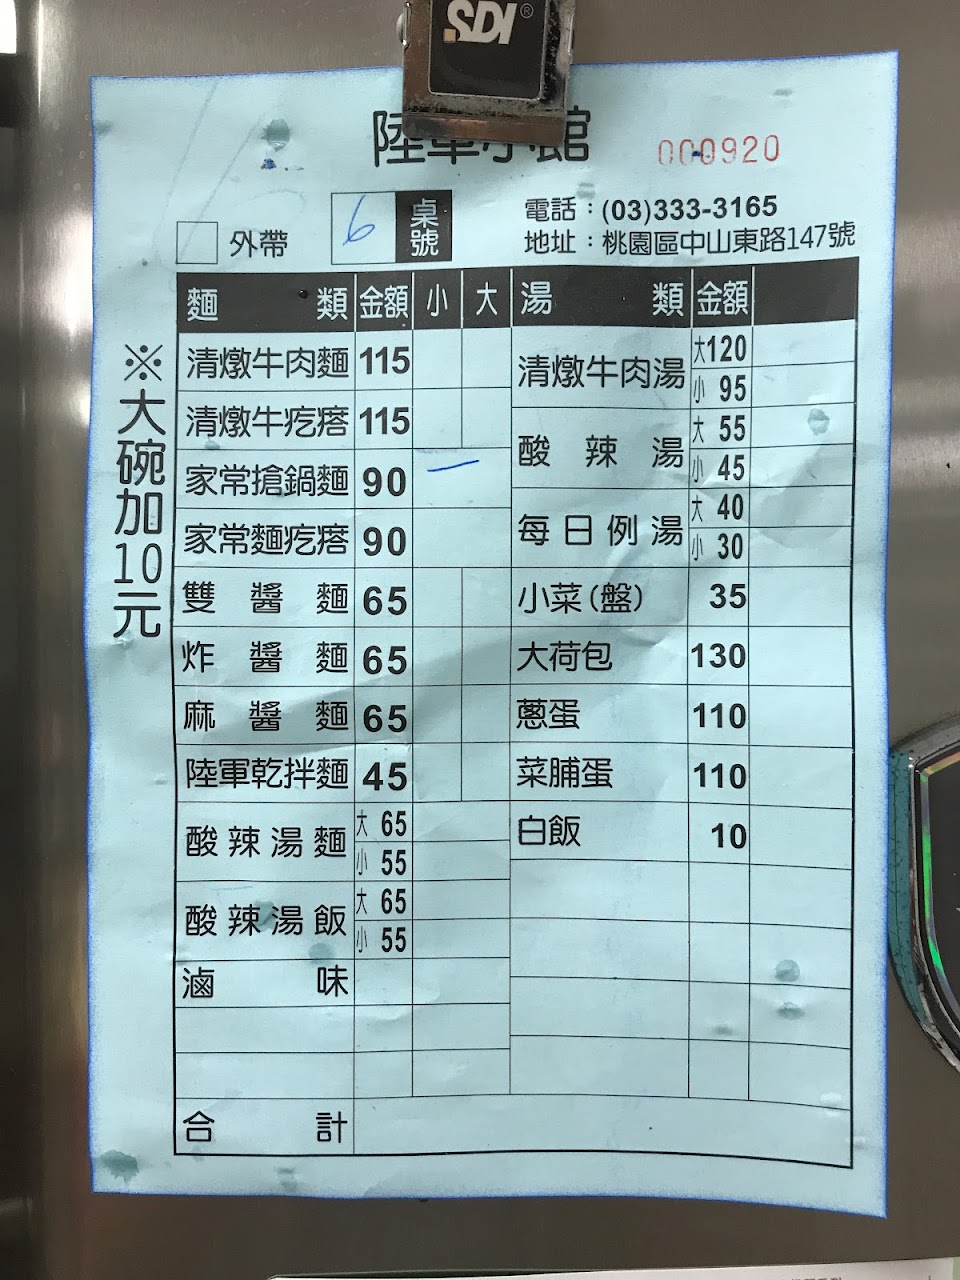 SDI®
陸軍小館
000920
外帶
6
桌號
電話：(03)333-3165
地址：桃園區中山東路147號
※大碗加10元
麵類 金額 小 大
清燉牛肉麵 115
清燉牛疙瘩 115
家常搶鍋麵 90 一
家常麵疙瘩 90
雙醬麵 65
炸醬麵 65
麻醬麵 65
陸軍乾拌麵 45
酸辣湯麵 大 65
小 55
酸辣湯飯 大 65
小 55
滷味
合計
湯類 金額
清燉牛肉湯 大120
小 95
酸辣湯 大 55
小 45
每日例湯 大 40
小 30
小菜(盤) 35
大荷包 130
蔥蛋 110
菜脯蛋 110
白飯 10